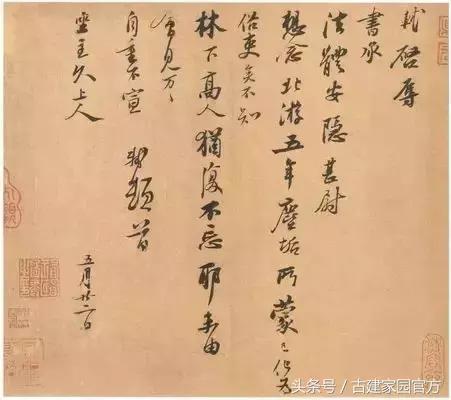 軾啓辱
書承
法體安隱甚尉
想念北游五年塵垢所蒙已化為
俗吏矣不知
林下高人猶復不忘耶未由
會見万々
自重不宣 軾頓首
坐主久上人
五月廿二日
头条号 / 古建家园官方